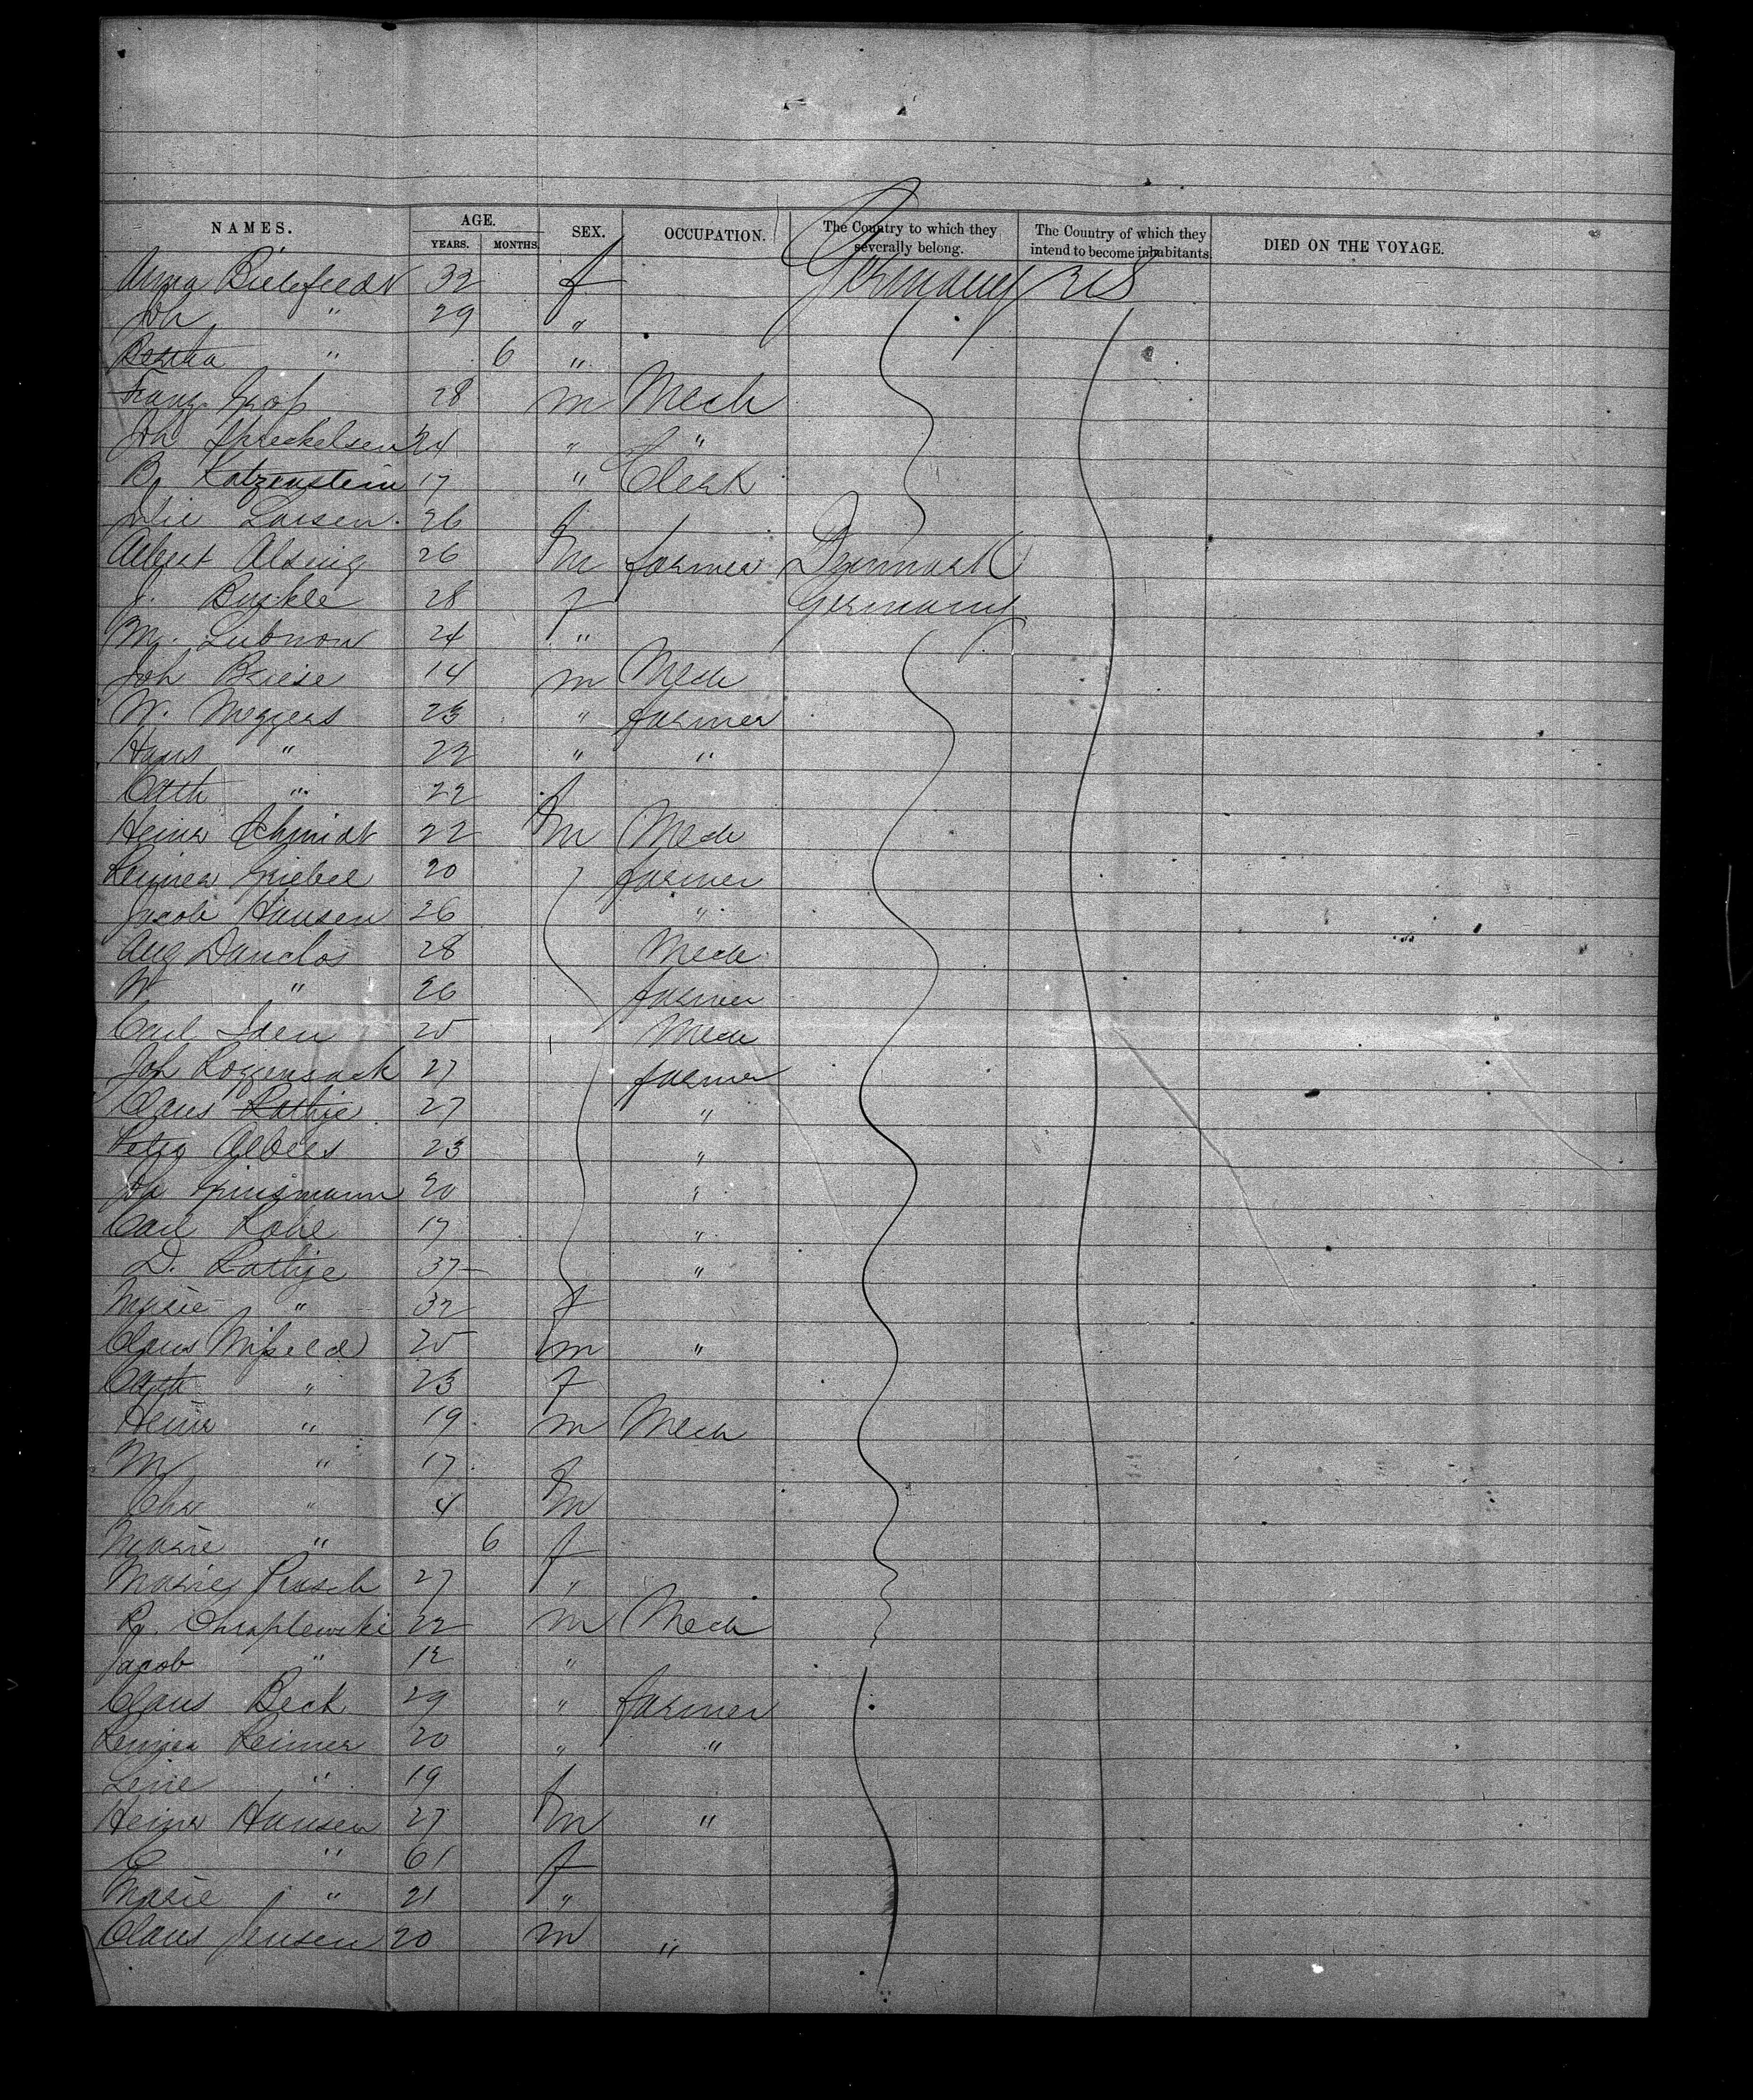 NAMES. AGE. SEX. OCCUPATION. The Country to which they severally belong. The Country of which they intend to become inhabitants DIED ON THE VOYAGE.
YEARS. MONTHS.
Anna Bielefeldt 32 f Germany US
Joh " 29 "
Bertha " 6 "
Franz 28 m Mech
Joh Spreckelsen 24 " "
B. Katzenstein 17 " Clerk
Julie Larsen. 26 f
Albert Alsing 26 m farmer Denmark
J. 28 f Germany
M. Lubnow 24 "
Joh Briese 14 m Mech
W. Meggers 23 " farmer
Hans " 22 " "
Cath " 22 f
Heinr Schmidt 22 m Mech
Reimer Griebel 20 farmer
Jacob Hansen 26 "
Aug 28 Mech
W " 26 farmer
Carl Iden 25 Mech
Joh Roggensack 27 farmer
Claus Rathje 27 "
Peter Albers 23 "
Joh 20 "
Carl 17 "
D. Rathje 37 "
Marie " 32 f
Claus 25 m "
Cath " 23 f
Heinr " 19 m Mech
M " 17 f
Chr " 4 m
Marie " 6 f
Marie 27 "
R. Chraplewski 22 m Mech
Jacob " 12 "
Claus Beck 29 " farmer
Reimer Reimer 20 " "
Lene " 19 f
Heinr Hansen 27 m "
C " 61 f
Marie " 21 "
Claus Jensen 20 m "